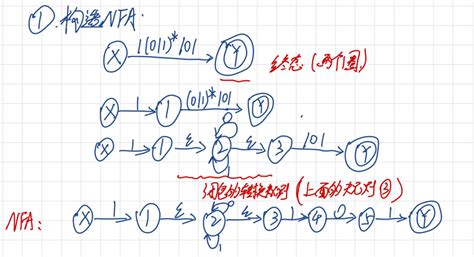 ① 构造NFA:
X 1(0|1)*101 Y 终态(两个圈)
X 1 1 (0|1)*101 Y
X 1 1 ε 0 2 1 ε 3 101 Y
闭包的转换规则(上面的规则③)
NFA: X 1 1 ε 0 2 1 ε 3 1 4 0 5 1 Y